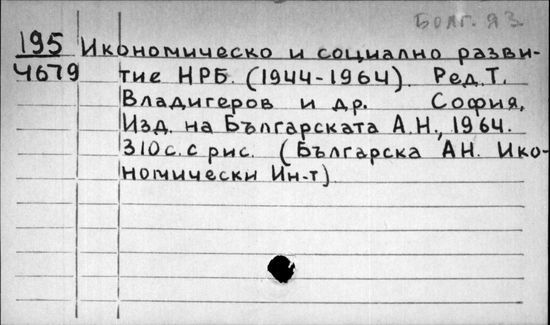 Болг. яз.
195 Икономическо и социално разви-
4679 тие НРБ. (1944-1964). Ред. Т.
Владигеров и др. София,
Изд. на Българската А.Н., 1964.
310 с. с рис. (Българска АН. Ико-
номически Ин-т)